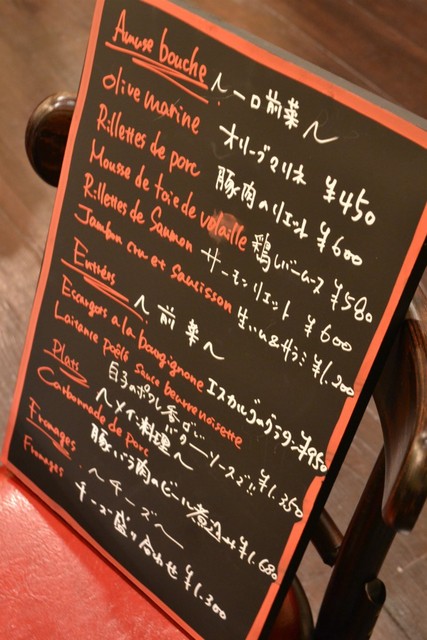 Amuse bouche ～一口前菜～
olive marine オリーブマリネ ¥450
Rillettes de porc 豚肉のリエット ¥600
Mousse de foie de volaille 鶏レバームース ¥580
Rillettes de Saumon サーモンリエット ¥600
Jambon cru et saucisson 生ハム&サラミ ¥1,200
Entrées ～前菜～
Escargots a la bourgignone エスカルゴのグラタン ¥950
Laitance poêlé sauce beurre noisette
白子のポワレ香ばしいバターソースで!! ¥1,350
Plats ～メイン料理～
Carbonnade de porc 豚バラ肉のビール煮込み ¥1,680
Fromages ～チーズ～
Fromages チーズ盛り合わせ ¥1,300